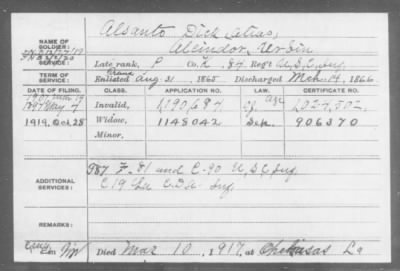 NAME OF SOLDIER: Alsanto Dick alias,
Alcindor, Urbin
SERVICE: Late rank, P Co. K, 84 Reg't U.S.C. Inf.
TERM OF SERVICE: Enlisted Aug 31, 1865 Discharged Mch 14, 1866
DATE OF FILING. CLASS. APPLICATION NO. CERTIFICATE NO.
Invalid, 1,190,687 Age 1,024,502
1919, Oct. 28 Widow, 1148042 906370
Minor,
ADDITIONAL SERVICES: F. 81 and C-90 U.S.C. Inf
C 19 La C.D.A. Inf
REMARKS:
Died Mar 10, 1917, at La